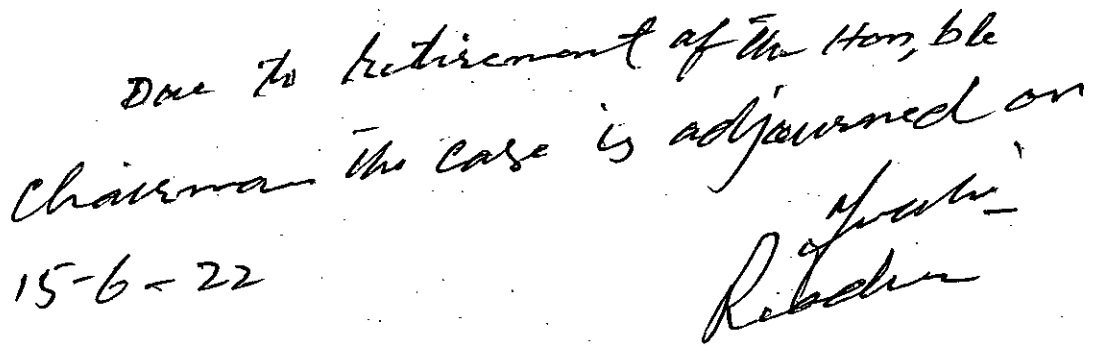 Due to retirement of the Hon,ble
Chairman the case is adjourned on
15-6-22
Reader